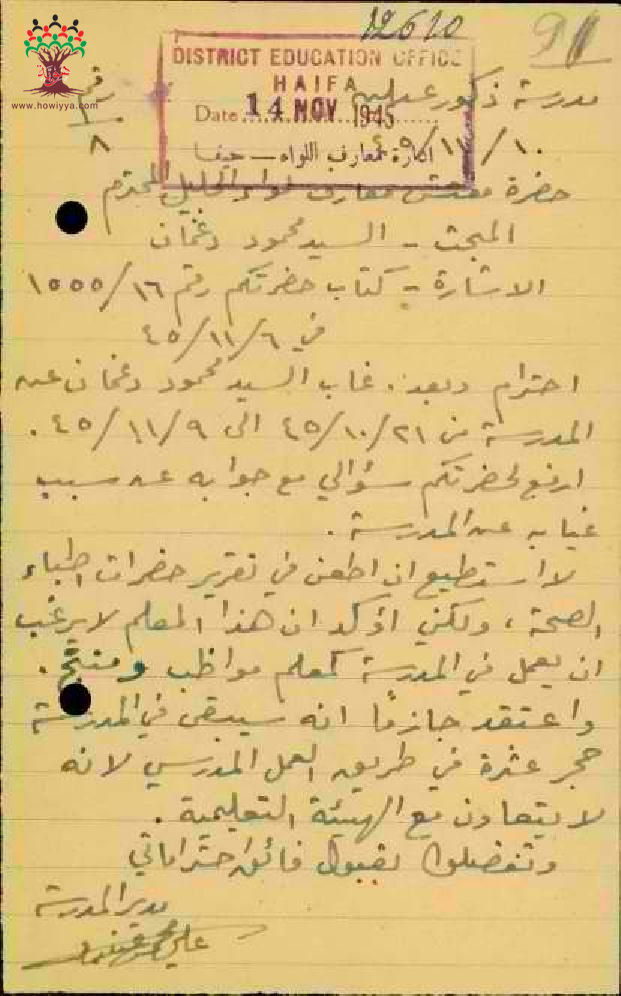 12610
DISTRICT EDUCATION OFFICE
HAIFA
Date 14 NOV 1945
ادارة معارف اللواء - حيفا
www.howiyya.com
رقم
٨
مدرسة ذكور
٤٥/١١/١٠
حضرة مفتش معارف لواء الجليل المحترم
المبحث - السيد محمود دغمان
الاشارة - كتاب حضرتكم رقم ١٥٥٥/١٦
في ٤٥/١١/٦
احترام وبعد. غاب السيد محمود دغمان عن
المدرسة من ٤٥/١٠/٢١ الى ٤٥/١١/٩.
ارفع لحضرتكم سؤالي مع جوابه عن سبب
غيابه عن المدرسة.
لا استطيع ان اطعن في تقرير حضرات اطباء
الصحة، ولكني اؤكد ان هذا المعلم لا يرغب
ان يعمل في المدرسة كمعلم مواظب ومنتج.
واعتقد جازمًا انه سيبقى في المدرسة
حجر عثرة في طريق العمل المدرسي لانه
لا يتعاون مع الهيئة التعليمية.
وتفضلوا بقبول فائق احتراماتي
مدير المدرسة
علي